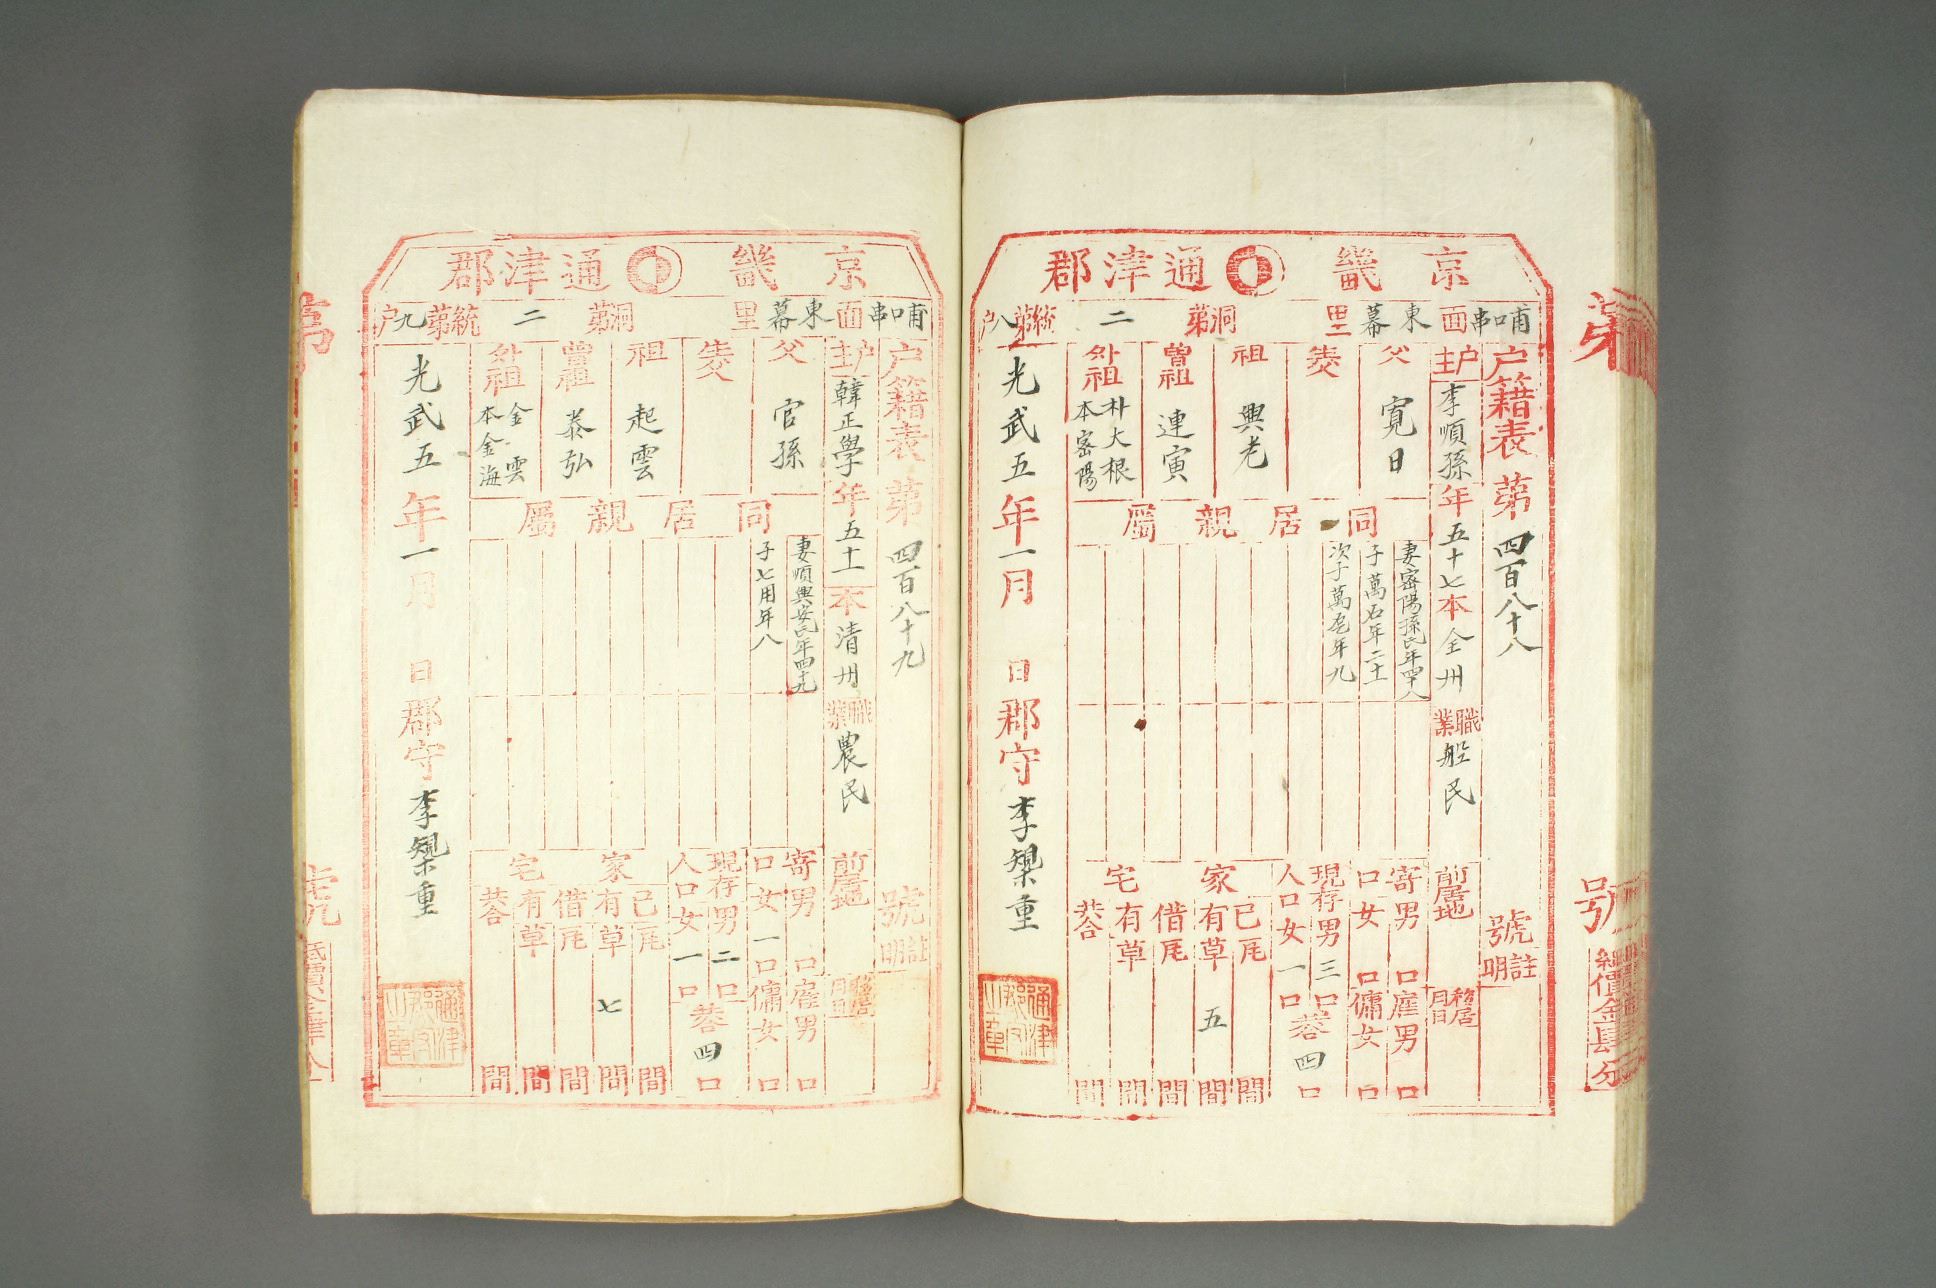 京畿 通津郡
哺口串面 東幕里 洞第二統第八户
户籍表 第四百八十八號
註明
户主 李順孫 年五十七 本全州 職業 船民
前居地
移居月日
父 寬日
生父
祖 興老
曾祖 連寅
外祖 朴大根 本密陽
同居親屬
妻密陽孫氏年四十八
子萬石年二十
次子萬宅年九
寄口 男 口 女 口
雇男 口 傭女 口
現存人口 男三口 女一口 共四口
家宅
己有 瓦 間 草 五 間
借有 瓦 間 草 間
共合 間
光武五年一月 日 郡守 李 重
通津郡守之章
第 號
紙價金肆分
京畿 通津郡
哺口串面 東幕里 洞第二統第九户
户籍表 第四百八十九號
註明
户主 韓正學 年五十一 本清州 職業 農民
前居地
移居月日
父 官孫
生父
祖 起雲
曾祖 泰弘
外祖 金雲 本金海
同居親屬
妻順興安氏年四十九
子七用年八
寄口 男 口 女一口
雇男 口 傭女 口
現存人口 男二口 女一口 共四口
家宅
己有 瓦 間 草 七 間
借有 瓦 間 草 間
共合 間
光武五年一月 日 郡守 李 重
通津郡守之章
第 號